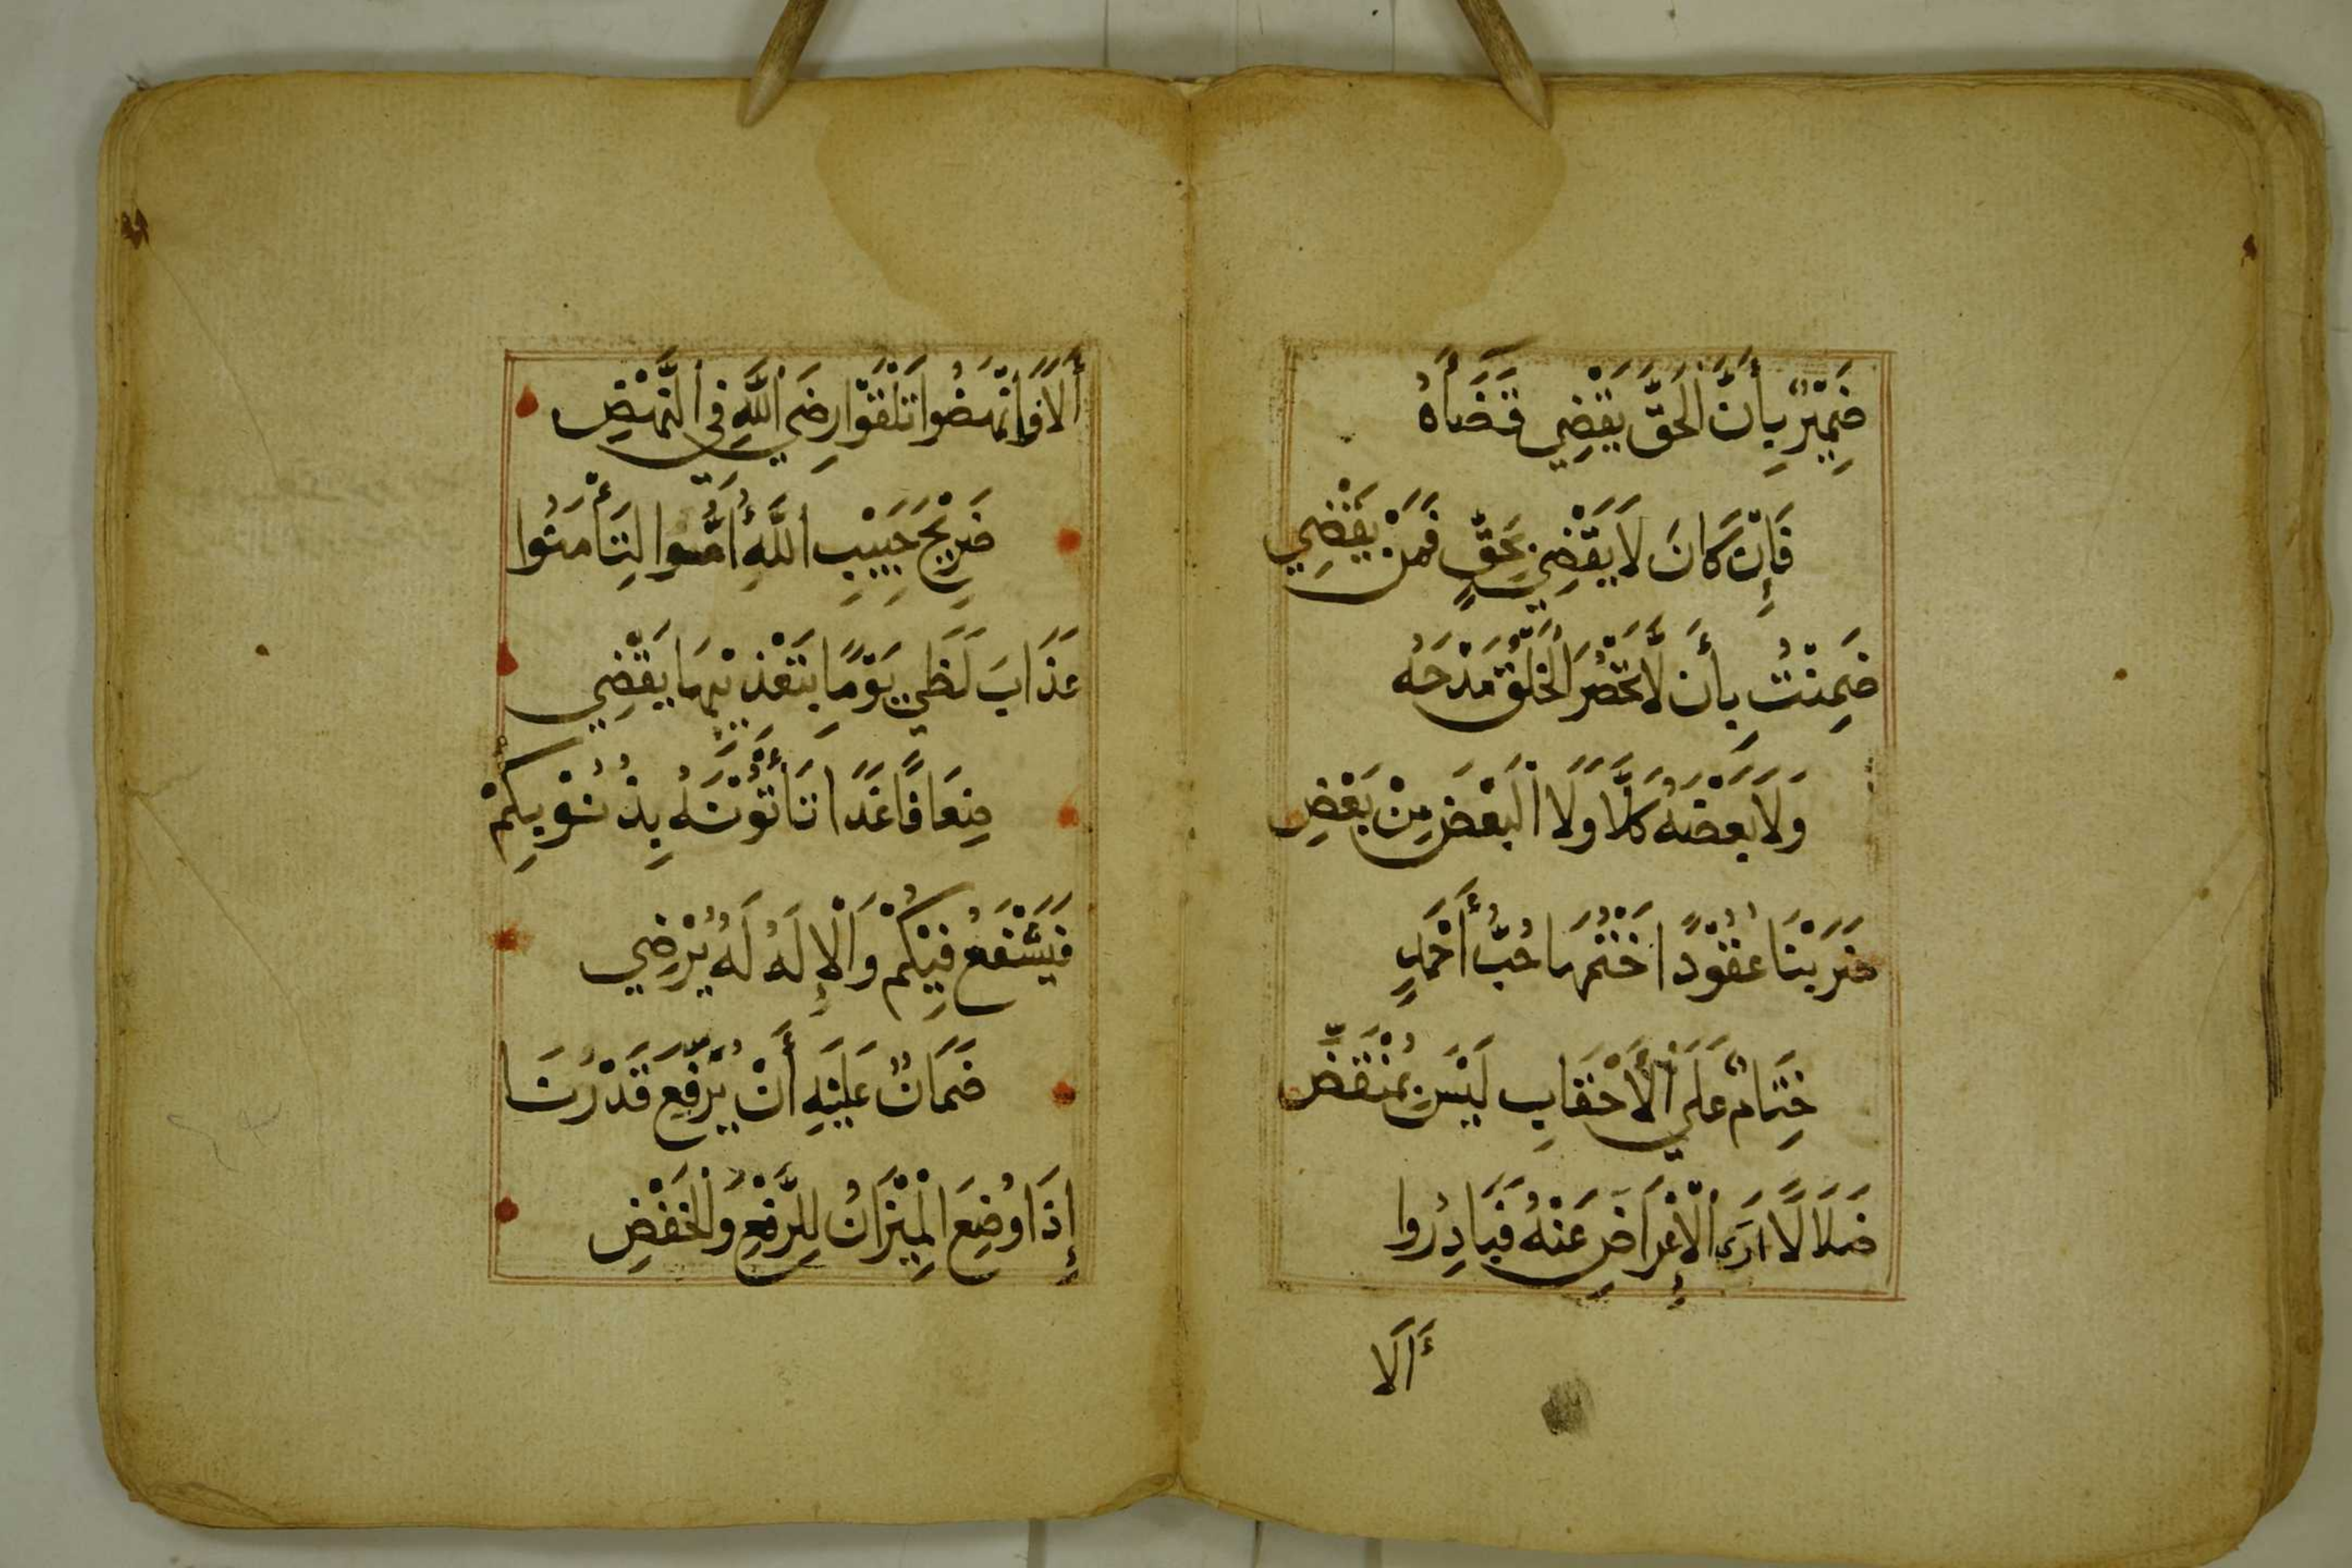 ضَمِيْرٌ بِأَنَّ الْحَقَّ يَقْضِي قَضَاَهُ
فَإِنْ كَانَ لَا يَقْضِي بِحَقٍّ فَمَنْ يَقْضِي
ضَمِنْتُ بِأَن لَّا تَحْصُرَ الْخَلْقُ مَدْحَهُ
وَلَا بَعْضَهُ كَلَّا وَلَا الْبَعْضَ مِنْ بَعْضِ
ضَرَبْنَا عُقُوْدًا خَتْمُهَا حُبُّ أَحْمَدٍ
خِتَامٌ عَلَى الْأَحْقَابِ لَيْسَ بِمُنْقَضِّ
ضَلَالًا أَرَى الْإِعْرَاضَ عَنْهُ فَبَادِرُوا
أَلَا
أَلَا فَانْهَضُوا تَلْقَوْا رِضَى اللَّهِ فِي النَّهْضِ
ضَرِيْحَ حَبِيْبِ اللَّهِ أُمُّوا لِتَأْمَنُوا
عَذَابَ لَظَى يَوْمًا بِتَعْذِيْبِهَا يَقْضِي
ضِعَافًا غَدًا تَأْتُوْنَهُ بِذُنُوْبِكُمْ
فَيَشْفَعُ فِيْكُمْ وَالْإِلَهُ لَهُ يُرْضِي
ضَمَانٌ عَلَيْهِ أَنْ يُرَفِّعَ قَدْرَنَا
إِذَا وُضِعَ الْمِيْزَانُ لِلرَّفْعِ وَالْخَفْضِ